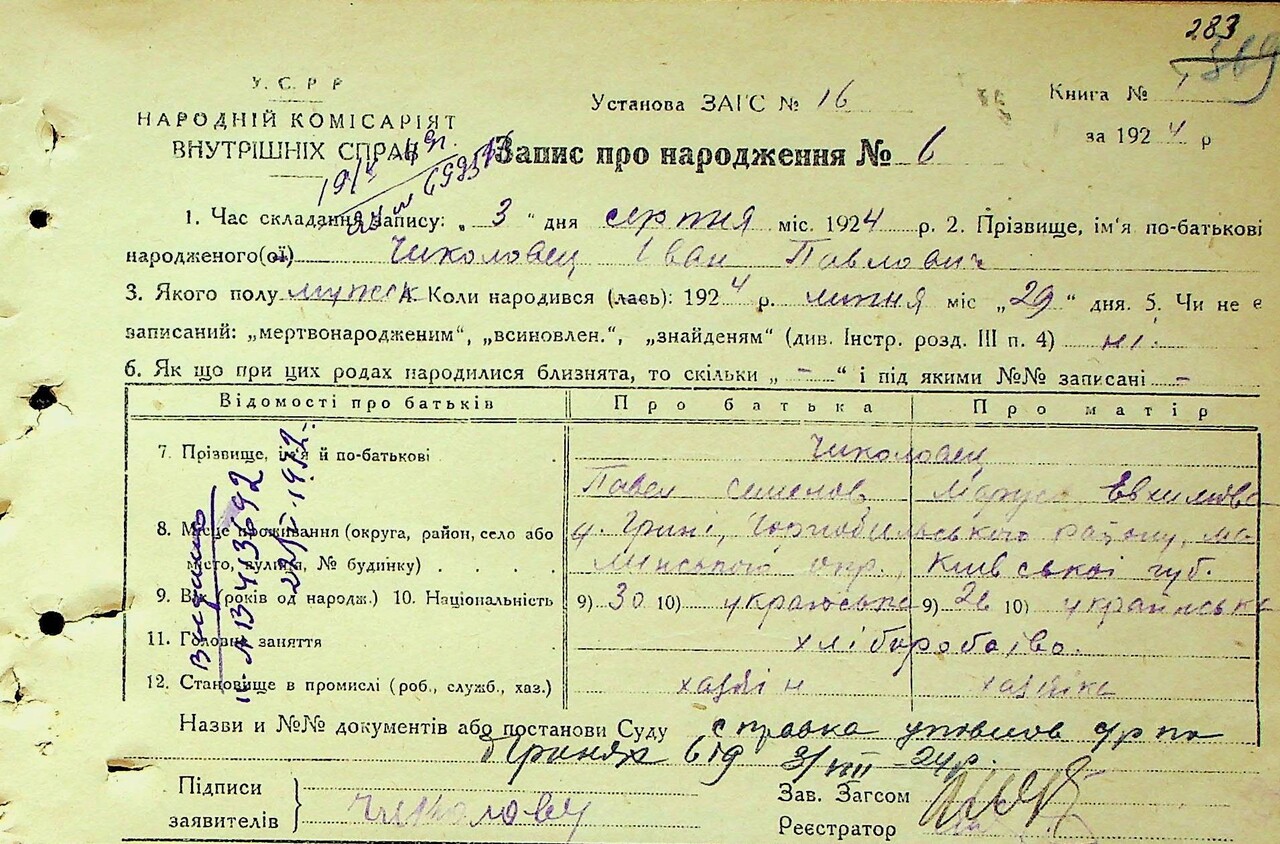 283
369
У.С.Р.Р
НАРОДНІЙ КОМІСАРІЯТ
ВНУТРІШНІХ СПРАВ
Установа ЗАГС № 16
Книга №
за 1924 р
Запис про народження № 6
1. Час складання запису: „ 3 " дня серпня міс. 1924 р. 2. Прізвище, ім'я по-батькові
народженого(ої) Чиколовец Іван Павлович
3. Якого полу мужск 4. Коли народився (лась): 1924 р. липня міс „29" дня. 5. Чи не є
записаний: „мертвонародженим", „всиновлен.", „знайденям" (див. Інстр. розд. III п. 4) ні.
6. Як що при цих родах народилися близнята, то скільки „ - " і під якими №№ записані -
Відомості про батьків Про батька Про матір
7. Прізвище, ім'я й по-батькові Чиколовец
Павел Семенов Маруся
8. Місце проживання (округа, район, село або
місто, вулиця, № будинку) Чорнобильського району,
окр., Київської губ.
9. Вік (років од народж.) 10. Національність 9) 30 10) українська 9) 26 10) українська
11. Головне заняття хліборобство.
12. Становище в промислі (роб., служб., хаз.) хазяін хазяйка
Назви и №№ документів або постанови Суду справка
від 3/VIII-24р.
Підписи
заявителів
Зав. Загсом
Реєстратор